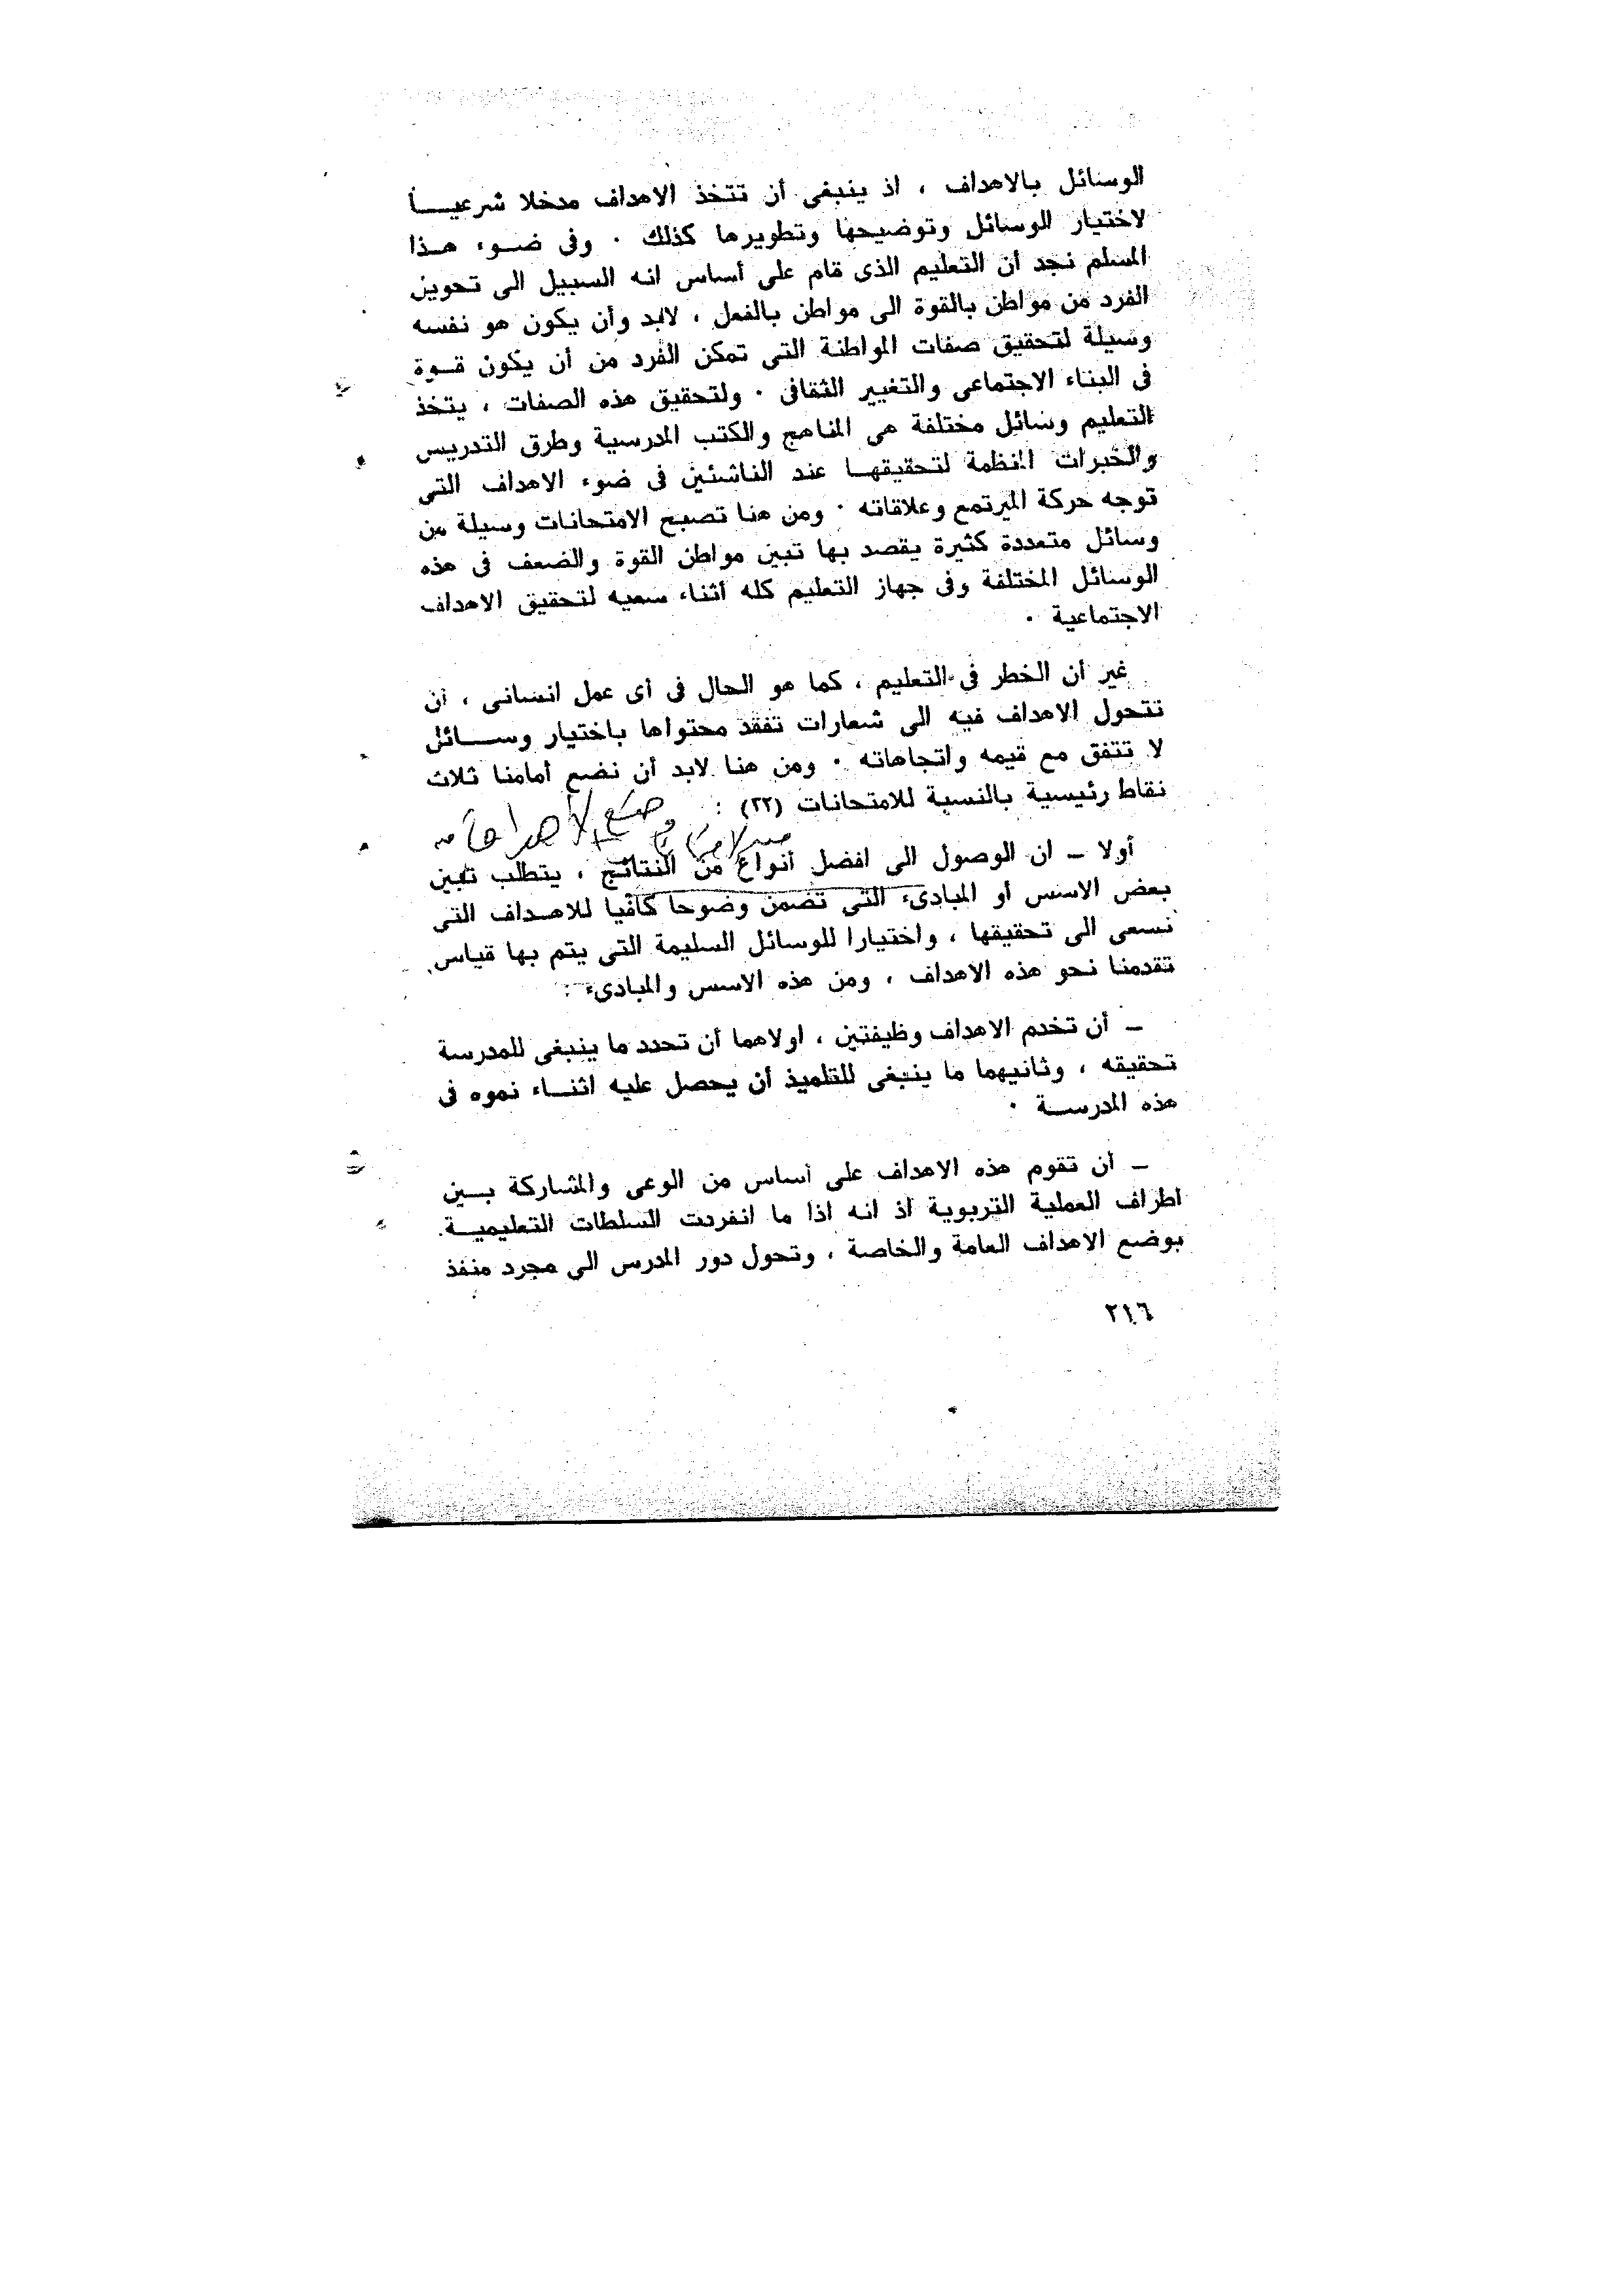 الوسائل بالاهداف ، اذ ينبغى أن تتخذ الاهداف مدخلا شرعيـــا
لاختيار الوسائل وتوضيحها وتطويرها كذلك ٠ وفى ضــوء هــذا
المسلم نجد أن التعليم الذى قام على أساس انه السبيل الى تحوين
الفرد من مواطن بالقوة الى مواطن بالفعل ، لابد وأن يكون هو نفسه
وسيلة لتحقيق صفات المواطنة التى تمكن الفرد من أن يكون قــوة
فى البناء الاجتماعى والتغيير الثقافى ٠ ولتحقيق هذه الصفات ، يتخذ
التعليم وسائل مختلفة هى المناهج والكتب المدرسية وطرق التدريس
والخبرات المنظمة لتحقيقهــا عند الناشئين فى ضوء الاهداف التى
توجه حركة المرتمع وعلاقاته ٠ ومن هنا تصبح الامتحانات وسيلة من
وسائل متعددة كثيرة يقصد بها تبين مواطن القوة والضعف فى هذه
الوسائل المختلفة وفى جهاز التعليم كله أثناء سعيه لتحقيق الاهداف
الاجتماعية ٠
غير أن الخطر فى التعليم ، كما هو الحال فى أى عمل انسانى ، أن
تتحول الاهداف فيه الى شعارات تفقد محتواها باختيار وســـائل
لا تتفق مع قيمه واتجاهاته ٠ ومن هنا لابد أن نضع أمامنا ثلاث
نقاط رئيسية بالنسبة للامتحانات (٢٢) :
أولا ــ ان الوصول الى افضل أنواع من النتائج ، يتطلب تبين
بعض الاسس أو المبادىء التى تضمن وضوحا كافيا للاهــداف التى
نسعى الى تحقيقها ، واختيارا للوسائل السليمة التى يتم بها قياس
تقدمنا نحو هذه الاهداف ، ومن هذه الاسس والمبادىء :
ــ أن تخدم الاهداف وظيفتين ، اولاهما أن تحدد ما ينبغى للمدرسة
تحقيقه ، وثانيهما ما ينبغى للتلميذ أن يحصل عليه اثنــاء نموه فى
هذه المدرســة ٠
ــ أن تقوم هذه الاهداف على أساس من الوعى والمشاركة بــين
اطراف العملية التربوية اذ انه اذا ما انفردت السلطات التعليميــة
بوضع الاهداف العامة والخاصة ، وتحول دور المدرس الى مجرد منفذ
٢١٦